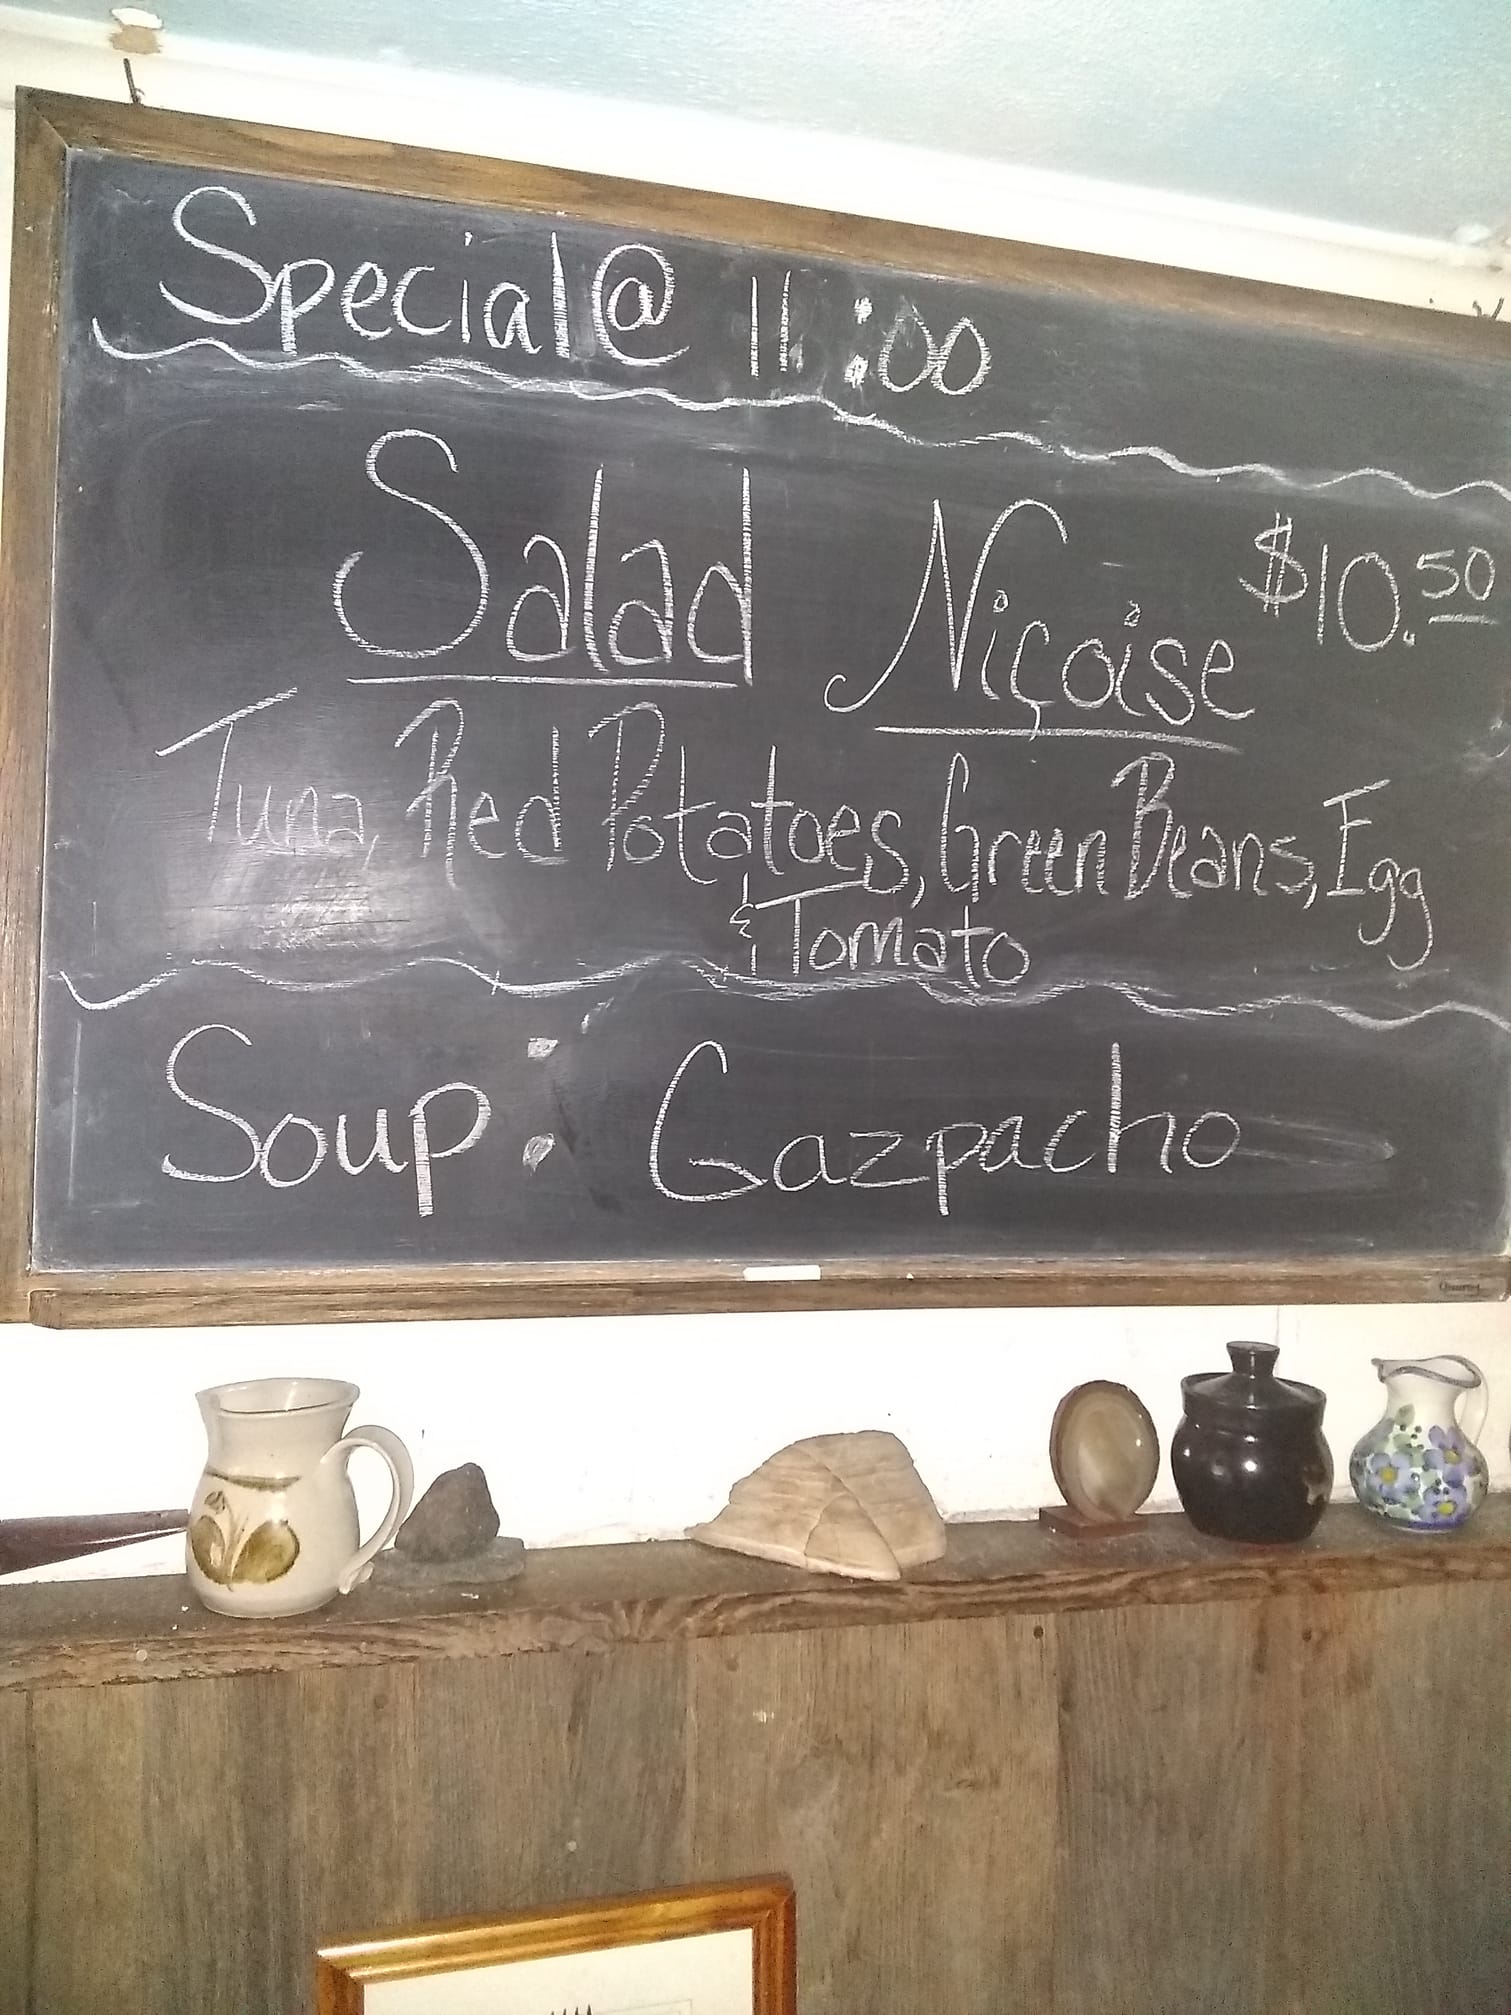 Special @ 11:00
Salad Niçoise $10.50
Tuna, Red Potatoes, Green Beans, Egg
& Tomato
Soup: Gazpacho
Quartet